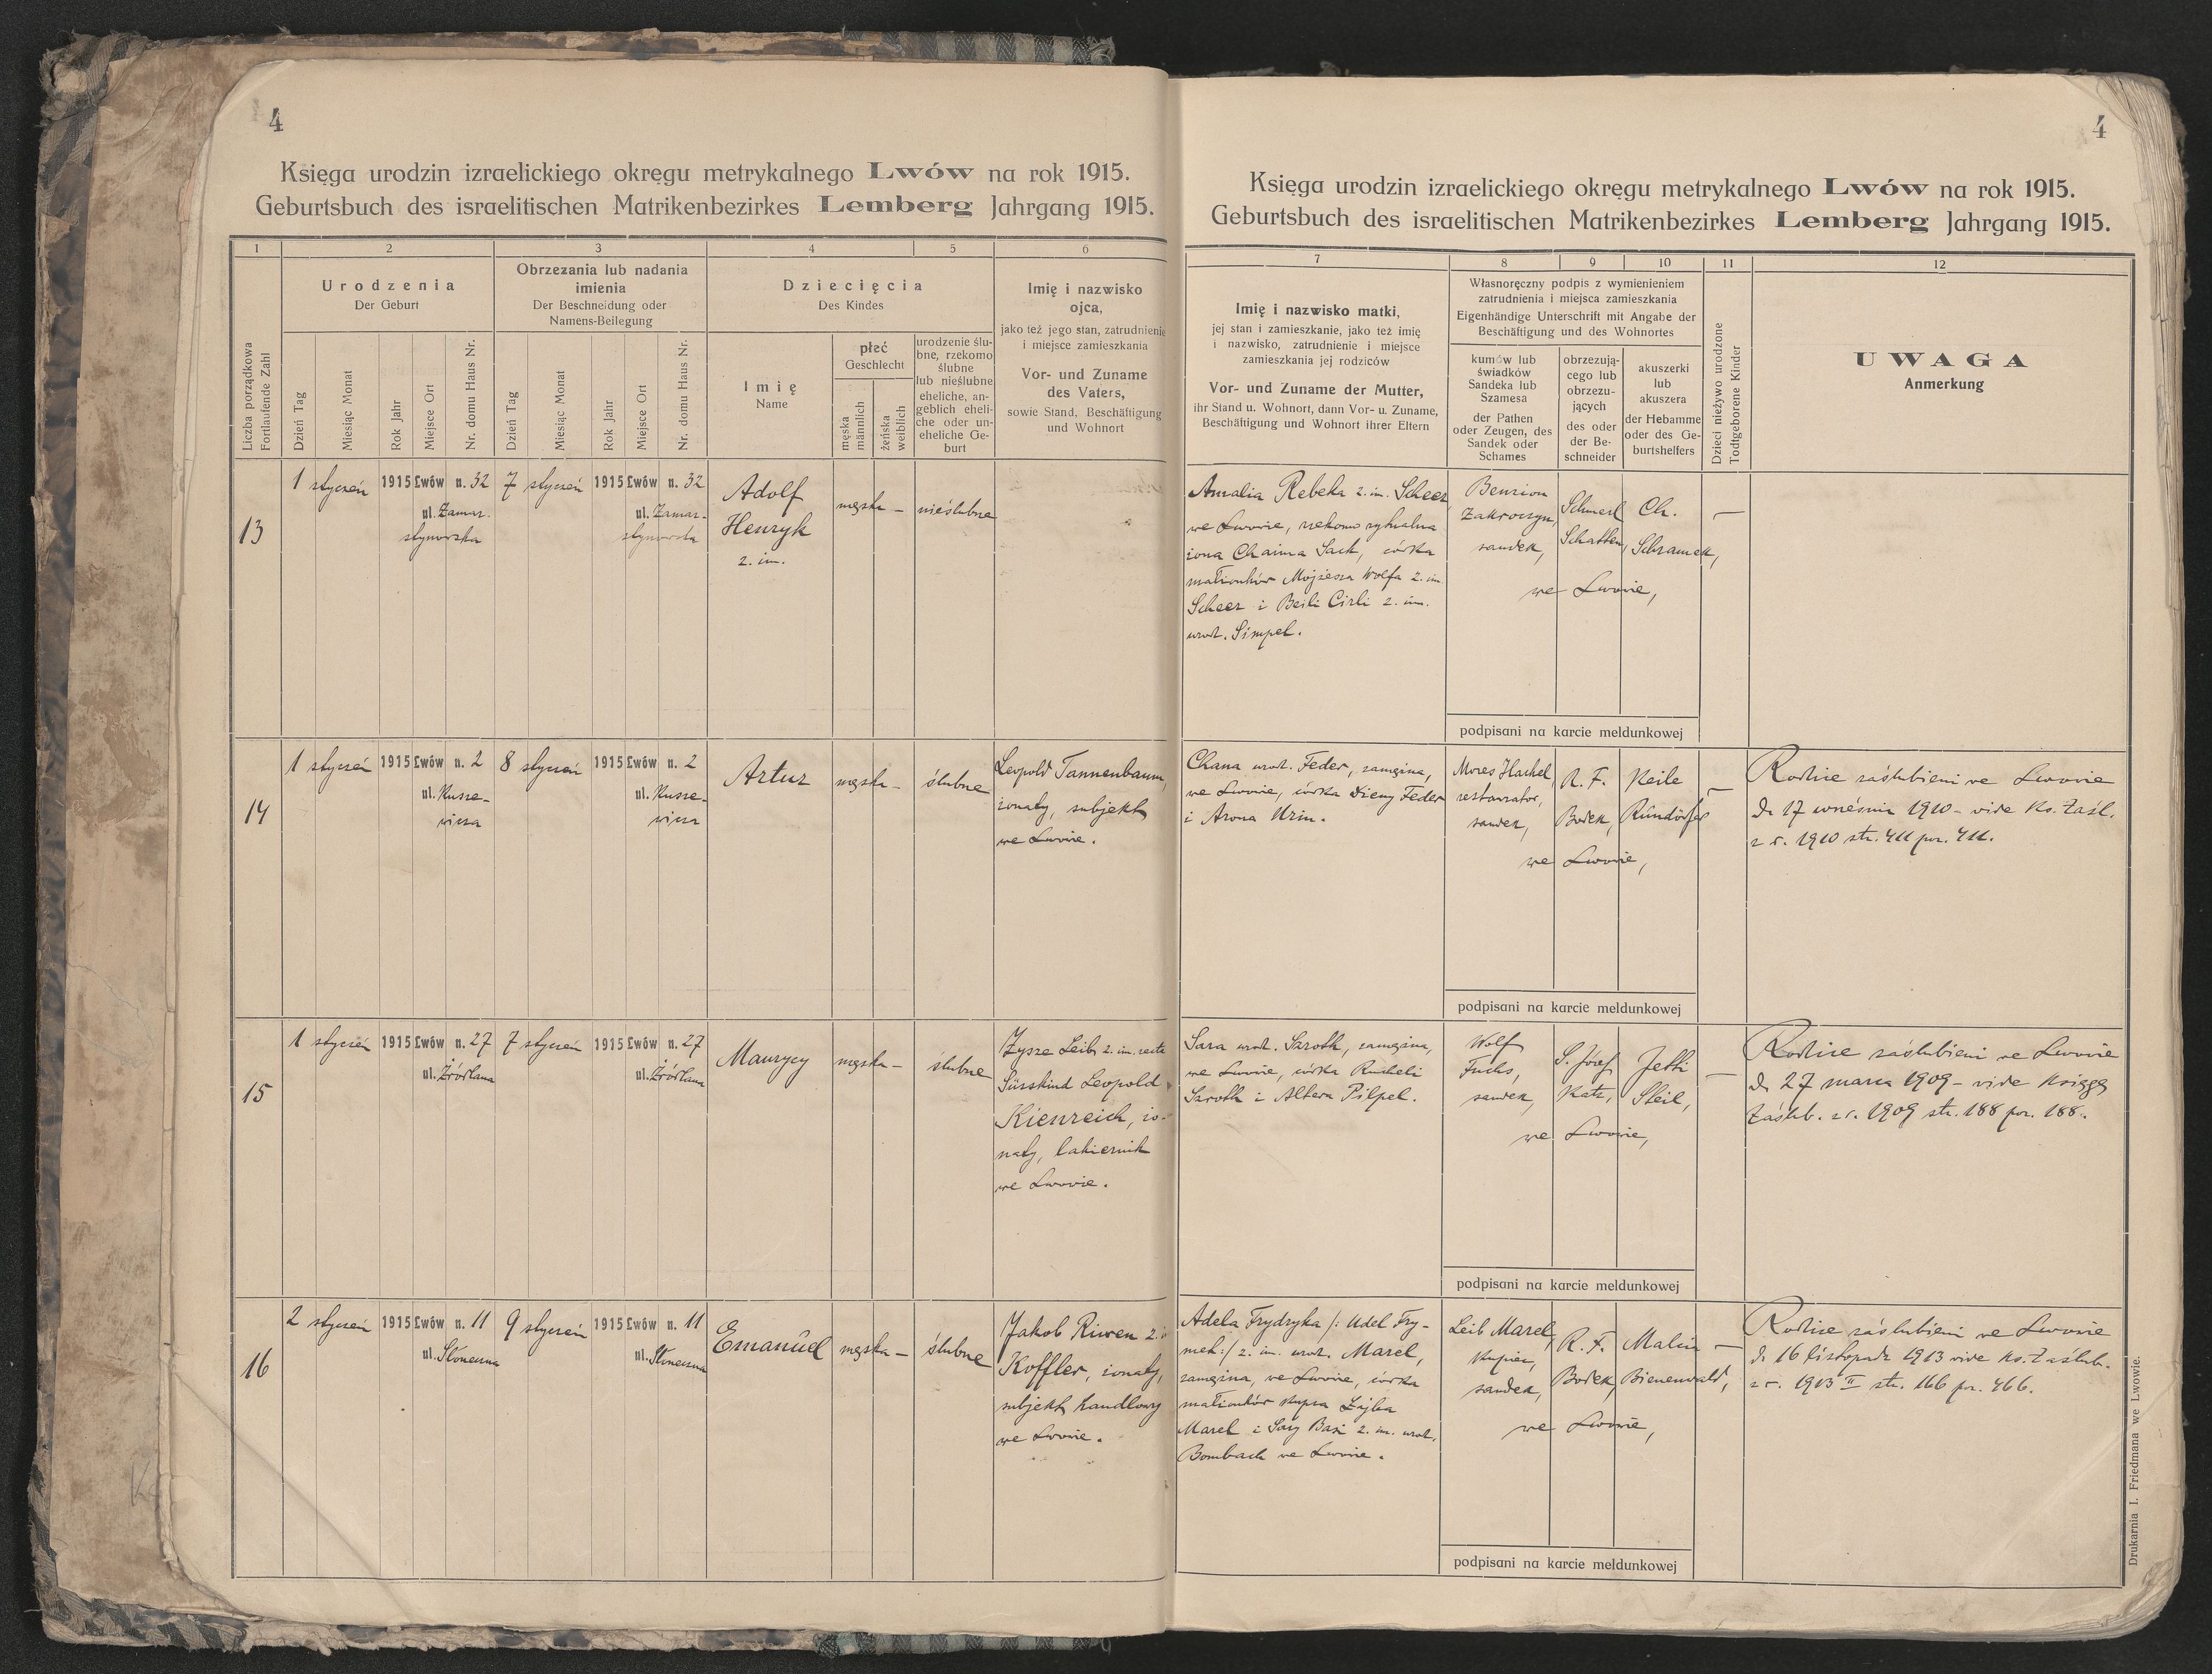 4
Księga urodzin izraelickiego okręgu metrykalnego Lwów na rok 1915.
Geburtsbuch des israelitischen Matrikenbezirkes Lemberg Jahrgang 1915.
1 2 3 4 5 6
Liczba porządkowa
Fortlaufende Zahl
Urodzenia
Der Geburt
Dzień Tag
Miesiąc Monat
Rok Jahr
Miejsce Ort
Nr. domu Haus Nr.
Obrzezania lub nadania
imienia
Der Beschneidung oder
Namens-Beilegung
Dzień Tag
Miesiąc Monat
Rok Jahr
Miejsce Ort
Nr. domu Haus Nr.
Dziecięcia
Des Kindes
Imię
Name
płeć
Geschlecht
męska
männlich
żeńska
weiblich
urodzenie ślu-
bne, rzekomo
ślubne
lub nieślubne
eheliche, an-
geblich eheli-
che oder un-
eheliche Ge-
burt
Imię i nazwisko
ojca,
jako też jego stan, zatrudnienie
i miejsce zamieszkania
Vor- und Zuname
des Vaters,
sowie Stand, Beschäftigung
und Wohnort
13
1 styczeń 1915 Lwów n. 32
ul. Zamar-
stynowska
7 styczeń 1915 Lwów n. 32
ul. Zamar-
stynowska
Adolf
Henryk
2. im.
męska —
nieślubne
14
1 styczeń 1915 Lwów n. 2
ul. Kusze-
wicza
8 styczeń 1915 Lwów n. 2
ul. Kusze-
wicza
Artur
męska —
ślubne
Leopold Tannenbaum,
żonaty, subjekt
we Lwowie.
15
1 styczeń 1915 Lwów n. 27
ul. Źródlana
7 styczeń 1915 Lwów n. 27
ul. Źródlana
Maurycy
męska —
ślubne
Zysze Leib 2. im. recte
Süsskind Leopold
Kienreich, żo-
naty, lakiernik
we Lwowie.
16
2 styczeń 1915 Lwów n. 11
ul. Słoneczna
9 styczeń 1915 Lwów n. 11
ul. Słoneczna
Emanuel
męska —
ślubne
Jakob Riwen 2. i
Koffler, żonaty,
subjekt handlowy
we Lwowie.
4
Księga urodzin izraelickiego okręgu metrykalnego Lwów na rok 1915.
Geburtsbuch des israelitischen Matrikenbezirkes Lemberg Jahrgang 1915.
7 8 9 10 11 12
Imię i nazwisko matki,
jej stan i zamieszkanie, jako też imię
i nazwisko, zatrudnienie i miejsce
zamieszkania jej rodziców
Vor- und Zuname der Mutter,
ihr Stand u. Wohnort, dann Vor- u. Zuname,
Beschäftigung und Wohnort ihrer Eltern
Własnoręczny podpis z wymienieniem
zatrudnienia i miejsca zamieszkania
Eigenhändige Unterschrift mit Angabe der
Beschäftigung und des Wohnortes
kumów lub
świadków
Sandeka lub
Szamesa
der Pathen
oder Zeugen, des
Sandek oder
Schames
obrzezują-
cego lub
obrzezu-
jących
des oder
der Be-
schneider
akuszerki
lub
akuszera
der Hebamme
oder des Ge-
burtshelfers
Dzieci nieżywo urodzone
Todtgeborene Kinder
UWAGA
Anmerkung
Amalia Rebeka 2. im. Scheer
we Lwowie, rzekomo rytualna
żona Chaima Sack, córka
małżonków Mojżesza Wolfa 2. im.
Scheer i Beili Cirli 2. im.
urodz. Simpel.
Benzion
Zakroczyn,
sandek,
Schmerl
Schatten,
Ch.
Schramek,
we Lwowie,
—
podpisani na karcie meldunkowej
Chana urodz. Feder, zamężna,
we Lwowie, córka Dieny Feder
i Arona Urim.
Mores Hackel,
restaurator,
sandek,
R. F.
Bodek,
Keile
Rundörfer
we Lwowie,
—
Rodzice zaślubieni we Lwowie
d. 17 września 1910 - vide Ks. Zaśl.
z r. 1910 str. 411 poz. 411.
podpisani na karcie meldunkowej
Sara urodz. Saroth, zamężna,
we Lwowie, córka Racheli
Saroth i Altera Pilpel.
Wolf
Fuchs,
sandek,
S. Josef
Katz,
Jetti
Steil,
we Lwowie,
—
Rodzice zaślubieni we Lwowie
d. 27 marca 1909 - vide Księgę
Zaślub. z r. 1909 str. 188 poz. 188.
podpisani na karcie meldunkowej
Adela Frydryka /: Udel Fry-
mek:/ 2. im. urodz. Marel,
zamężna, we Lwowie, córka
małżonków kupca Lajba
Marel i Sary Basi 2. im. urodz.
Bombach we Lwowie.
Leib Marel,
kupiec,
sandek,
R. F.
Bodek,
Malia
Bienenwald,
we Lwowie,
—
Rodzice zaślubieni we Lwowie
d. 16 listopada 1913 vide Ks. Zaślub.
z r. 1913 II str. 166 poz. 466.
podpisani na karcie meldunkowej
Drukarnia I. Friedmana we Lwowie.